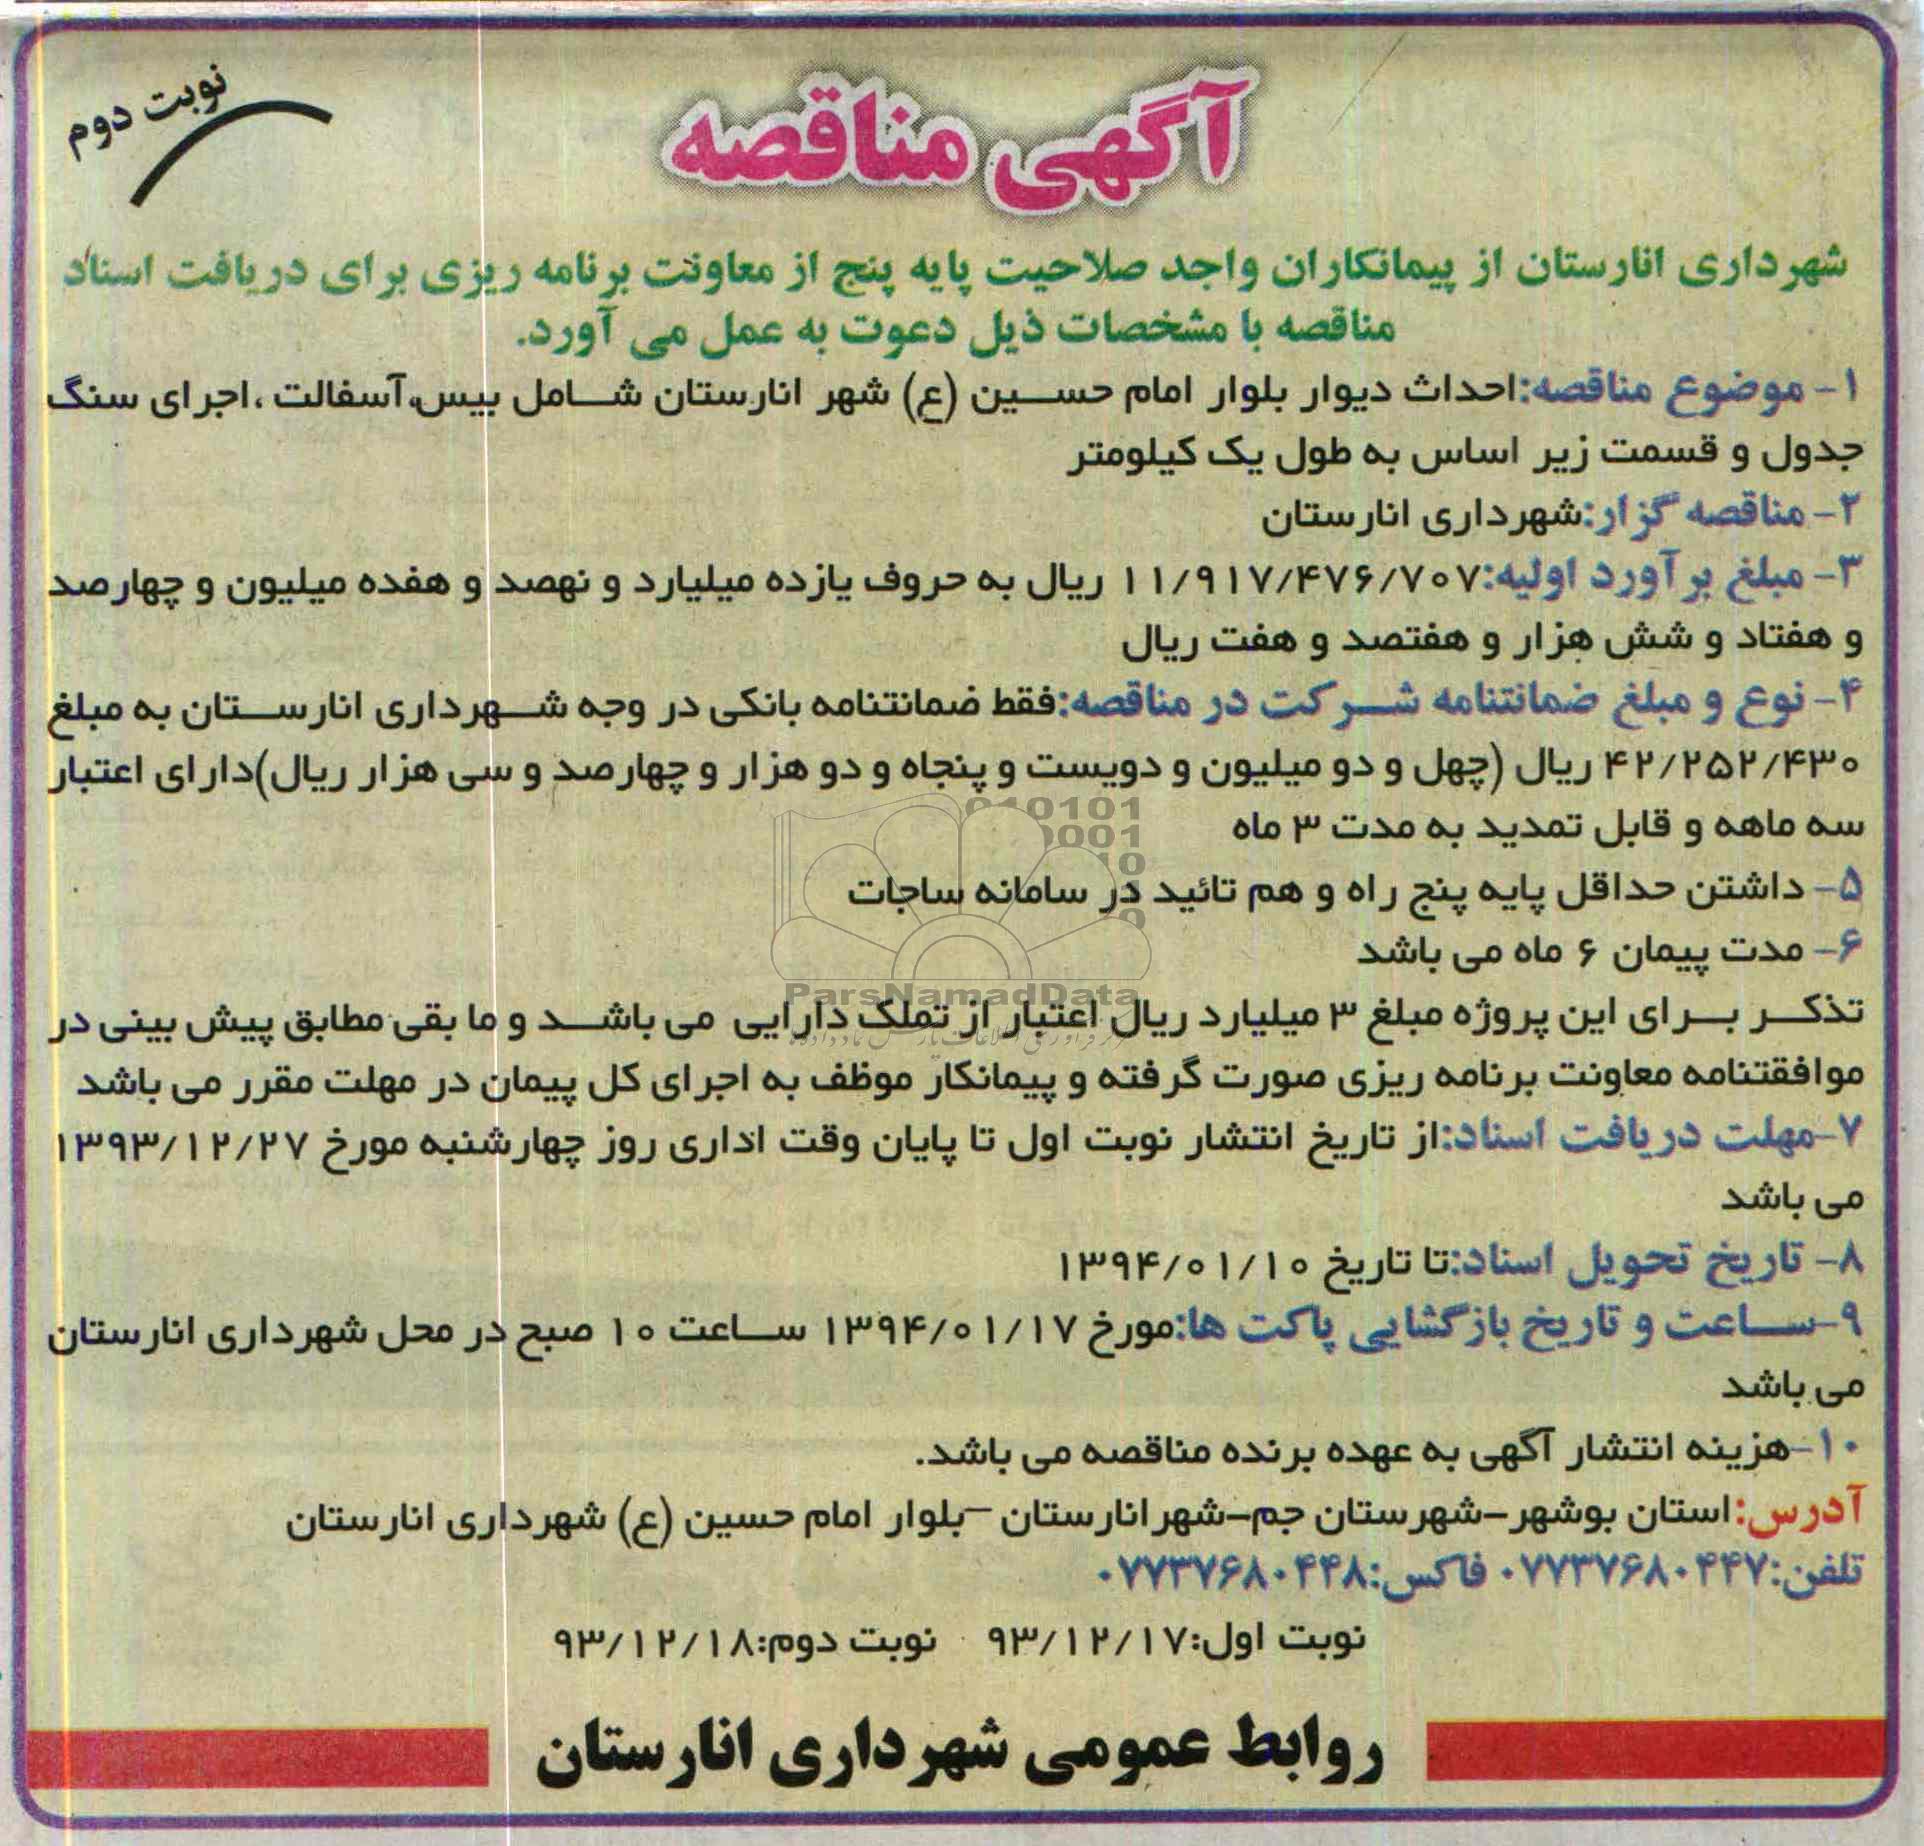 نوبت دوم
آگهی مناقصه
شهرداری انارستان از پیمانکاران واجد صلاحیت پایه پنج از معاونت برنامه ریزی برای دریافت اسناد
مناقصه با مشخصات ذیل دعوت به عمل می آورد.
۱- موضوع مناقصه:احداث دیوار بلوار امام حسین (ع) شهر انارستان شامل بیس،آسفالت ،اجرای سنگ
جدول و قسمت زیر اساس به طول یک کیلومتر
۲- مناقصه گزار:شهرداری انارستان
۳- مبلغ برآورد اولیه:۱۱/۹۱۷/۴۷۶/۷۰۷ ریال به حروف یازده میلیارد و نهصد و هفده میلیون و چهارصد
و هفتاد و شش هزار و هفتصد و هفت ریال
۴- نوع و مبلغ ضمانتنامه شرکت در مناقصه:فقط ضمانتنامه بانکی در وجه شهرداری انارستان به مبلغ
۴۲/۲۵۲/۴۳۰ ریال (چهل و دو میلیون و دویست و پنجاه و دو هزار و چهارصد و سی هزار ریال)دارای اعتبار
سه ماهه و قابل تمدید به مدت ۳ ماه
۵- داشتن حداقل پایه پنج راه و هم تائید در سامانه ساجات
۶- مدت پیمان ۶ ماه می باشد
تذکر برای این پروژه مبلغ ۳ میلیارد ریال اعتبار از تملک دارایی می باشد و ما بقی مطابق پیش بینی در
موافقتنامه معاونت برنامه ریزی صورت گرفته و پیمانکار موظف به اجرای کل پیمان در مهلت مقرر می باشد
۷-مهلت دریافت اسناد:از تاریخ انتشار نوبت اول تا پایان وقت اداری روز چهارشنبه مورخ ۱۳۹۳/۱۲/۲۷
می باشد
۸- تاریخ تحویل اسناد:تا تاریخ ۱۳۹۴/۰۱/۱۰
۹-ساعت و تاریخ بازگشایی پاکت ها:مورخ ۱۳۹۴/۰۱/۱۷ ساعت ۱۰ صبح در محل شهرداری انارستان
می باشد
۱۰-هزینه انتشار آگهی به عهده برنده مناقصه می باشد.
آدرس:استان بوشهر-شهرستان جم-شهرانارستان -بلوار امام حسین (ع) شهرداری انارستان
تلفن:۰۷۷۳۷۶۸۰۴۴۷ فاکس:۰۷۷۳۷۶۸۰۴۴۸
نوبت اول:۹۳/۱۲/۱۷ نوبت دوم:۹۳/۱۲/۱۸
روابط عمومی شهرداری انارستان
ParsNamadData